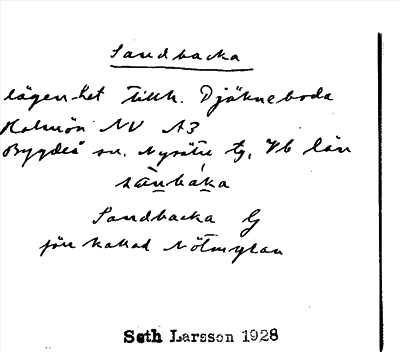 Sandbacka
lägenhet tillh. Djäkneboda
Holmön NV A3
Bygdeå sn. Nysätra tg, Vb län
sànbáka
Sandbacka G
förr kallad Nötmyran
Seth Larsson 1928